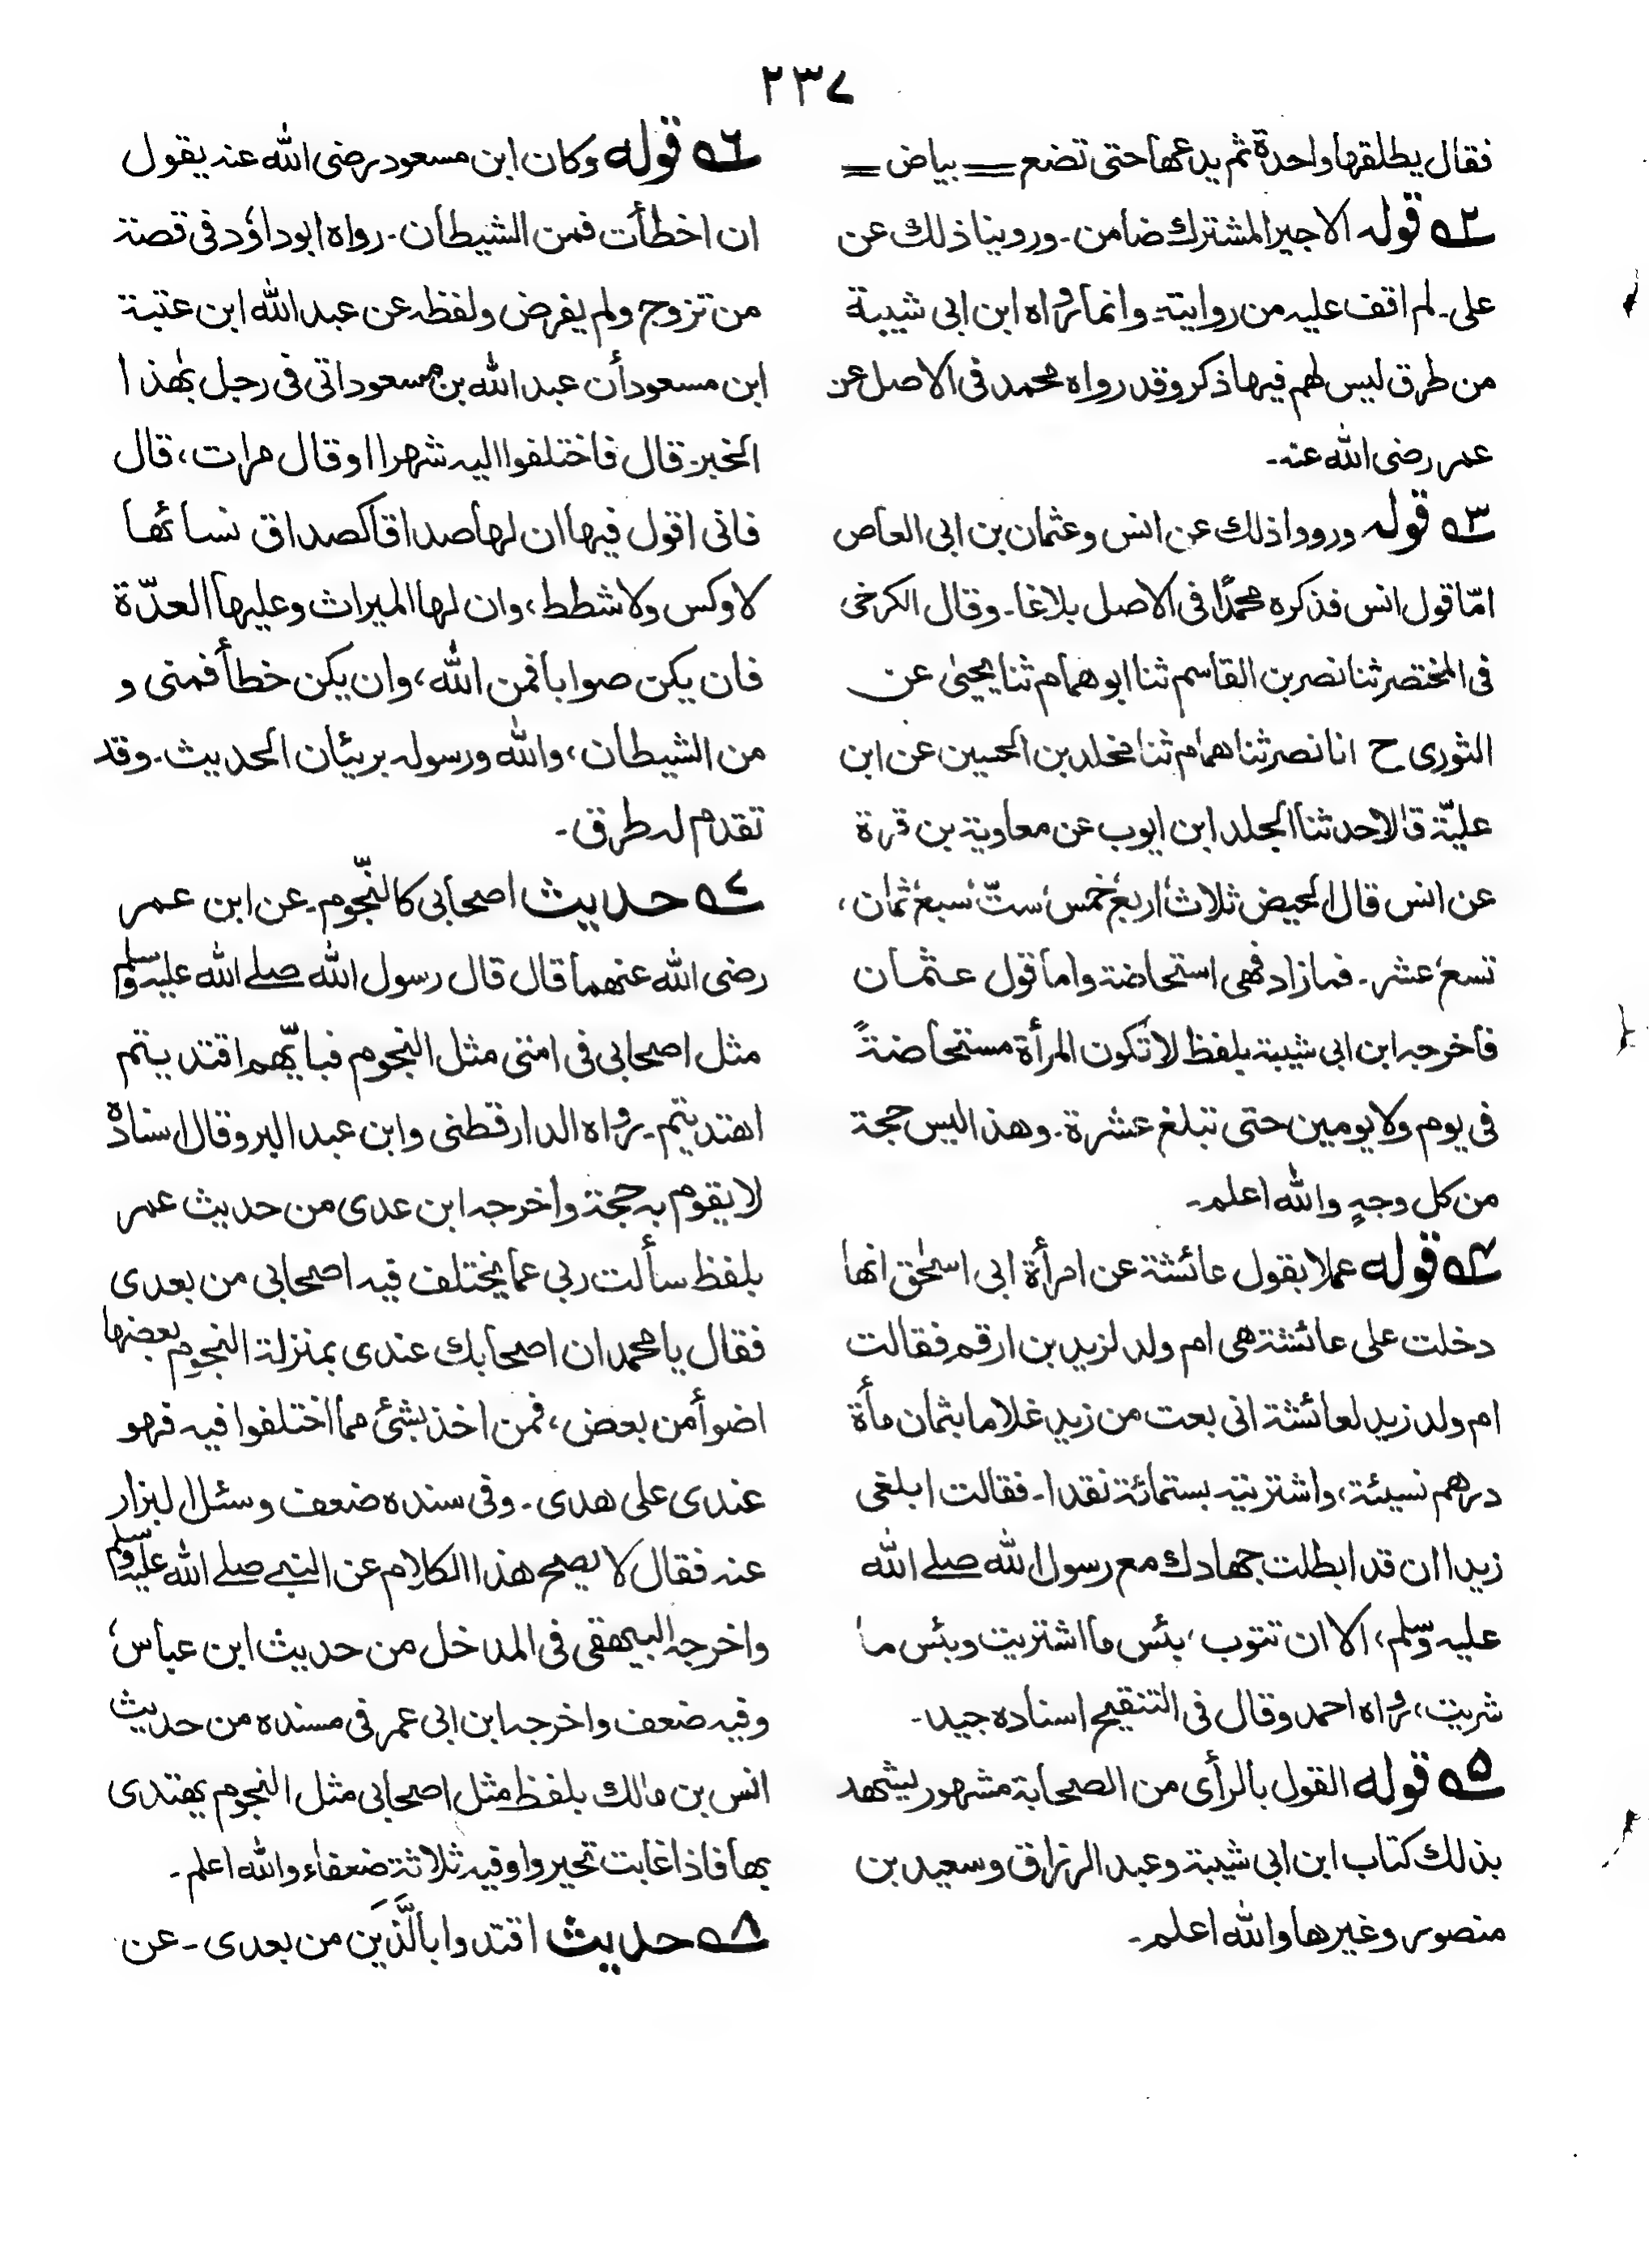 ۲۳۷
فقال يطلقها واحدة ثم يدعها حتى تضع = بياض =
۲ قوله الاجير المشترك ضامن۔ وروينا ذلك عن
على۔ لم اقف عليه من روايته۔ وانما رواه ابن ابى شيبة
من طرق ليس لهم فيها ذكر وقد رواه محمد فى الاصل عن
عمر رضى الله عنه۔
۳ قوله ورووا ذلك عن انس وعثمان بن ابى العاص
امّا قول انس فذكره محمدًا فى الاصل بلاغا۔ وقال الكرخى
فى المختصر ثنا نصر بن القاسم ثنا ابو همام ثنا يحيىٰ عن
الثورى ح انا نصر ثنا همام ثنا مخلد بن الحسين عن ابن
عليّة قالا حدثنا الجلد ابن ايوب عن معاوية بن قرة
عن انس قال الحيض ثلاث، اربع، خمس، ستّ، سبع، ثمان،
تسع، عشر۔ فمازاد فهى استحاضة واما قول عثمان
فاخرجه ابن ابى شيبة بلفظ لا تكون المرأة مستحاضةً
فى يوم ولا يومين حتى تبلغ عشرة۔ وهذا ليس حجة
من كل وجهٍ والله اعلم۔
۴ قوله عملا بقول عائشة عن امرأة ابى اسحٰق انها
دخلت على عائشة هى ام ولد لزيد بن ارقم فقالت
ام ولد زيد لعائشة انى بعت من زيد غلاما بثمان مأة
درهم نسيئة، واشتريته بستمائة نقدا۔ فقالت ابلغى
زيدا ان قد ابطلت جهادك مع رسول الله صلے الله
عليه وسلم، الا ان تتوب، بئس ما اشتريت وبئس ما
شريت، رواه احمد وقال فى التنقيح اسناده جيد۔
۵ قوله القول بالرأى من الصحابة مشهور ليشهد
بذلك كتاب ابن ابى شيبة وعبد الرزاق وسعيد بن
منصور وغيرها والله اعلم۔
۶ قوله وكان ابن مسعود رضى الله عنه يقول
ان اخطأت فمن الشيطان۔ رواه ابوداؤد فى قصة
من تزوج ولم يفرض ولفظه عن عبد الله ابن عتبة
ابن مسعود أن عبد الله بن مسعود اتى فى رجل بهذا
الخبر۔ قال فاختلفوا اليه شهرا او قال مرات، قال
فانى اقول فيها ان لها صداقا كصداق نسائها
لا وكس ولا شطط، وان لها الميراث وعليها العدّة
فان يكن صوابا فمن الله، وان يكن خطأ فمنى و
من الشيطان، والله ورسوله بريئان الحديث۔ وقد
تقدم له طرق۔
۷ حديث اصحابى كالنّجوم۔ عن ابن عمر
رضى الله عنهما قال قال رسول الله صلے الله عليه وسلم
مثل اصحابى فى امتى مثل النجوم فبايّهم اقتديتم
اهتديتم۔ رواه الدارقطنى وابن عبد البر وقال اسناده
لا يقوم به حجة واخرجه ابن عدى من حديث عمر
بلفظ سألت ربى عما يختلف فيه اصحابى من بعدى
فقال يا محمد ان اصحابك عندى بمنزلة النجوم بعضها
اضوأ من بعض، فمن اخذ بشئ مما اختلفوا فيه فهو
عندى على هدى۔ وفى سنده ضعف وسئل البزار
عنه فقال لا يصح هذا الكلام عن النبى صلے الله عليه وسلم
واخرجه البيهقى فى المدخل من حديث ابن عباس،
وفيه ضعف واخرجه ابن ابى عمر فى مسنده من حديث
انس بن مالك بلفظ مثل اصحابى مثل النجوم يهتدى
بها فاذا غابت تحيروا وفيه ثلاثة ضعفاء والله اعلم۔
۸ حديث اقتدوا بالَّذَين من بعدى۔ عن